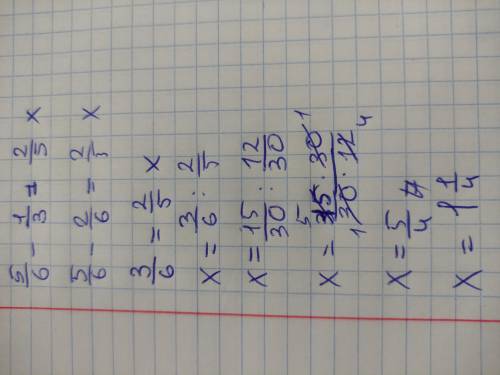 5/6 - 1/3 = 2/5 x
5/6 - 2/6 = 2/5 x
3/6 = 2/5 x
x = 3/6 : 2/5
x = 15/30 : 12/30
x = 15 5 · 30 1 / 1 30 · 12 4
x = 5/4
x = 1 1/4